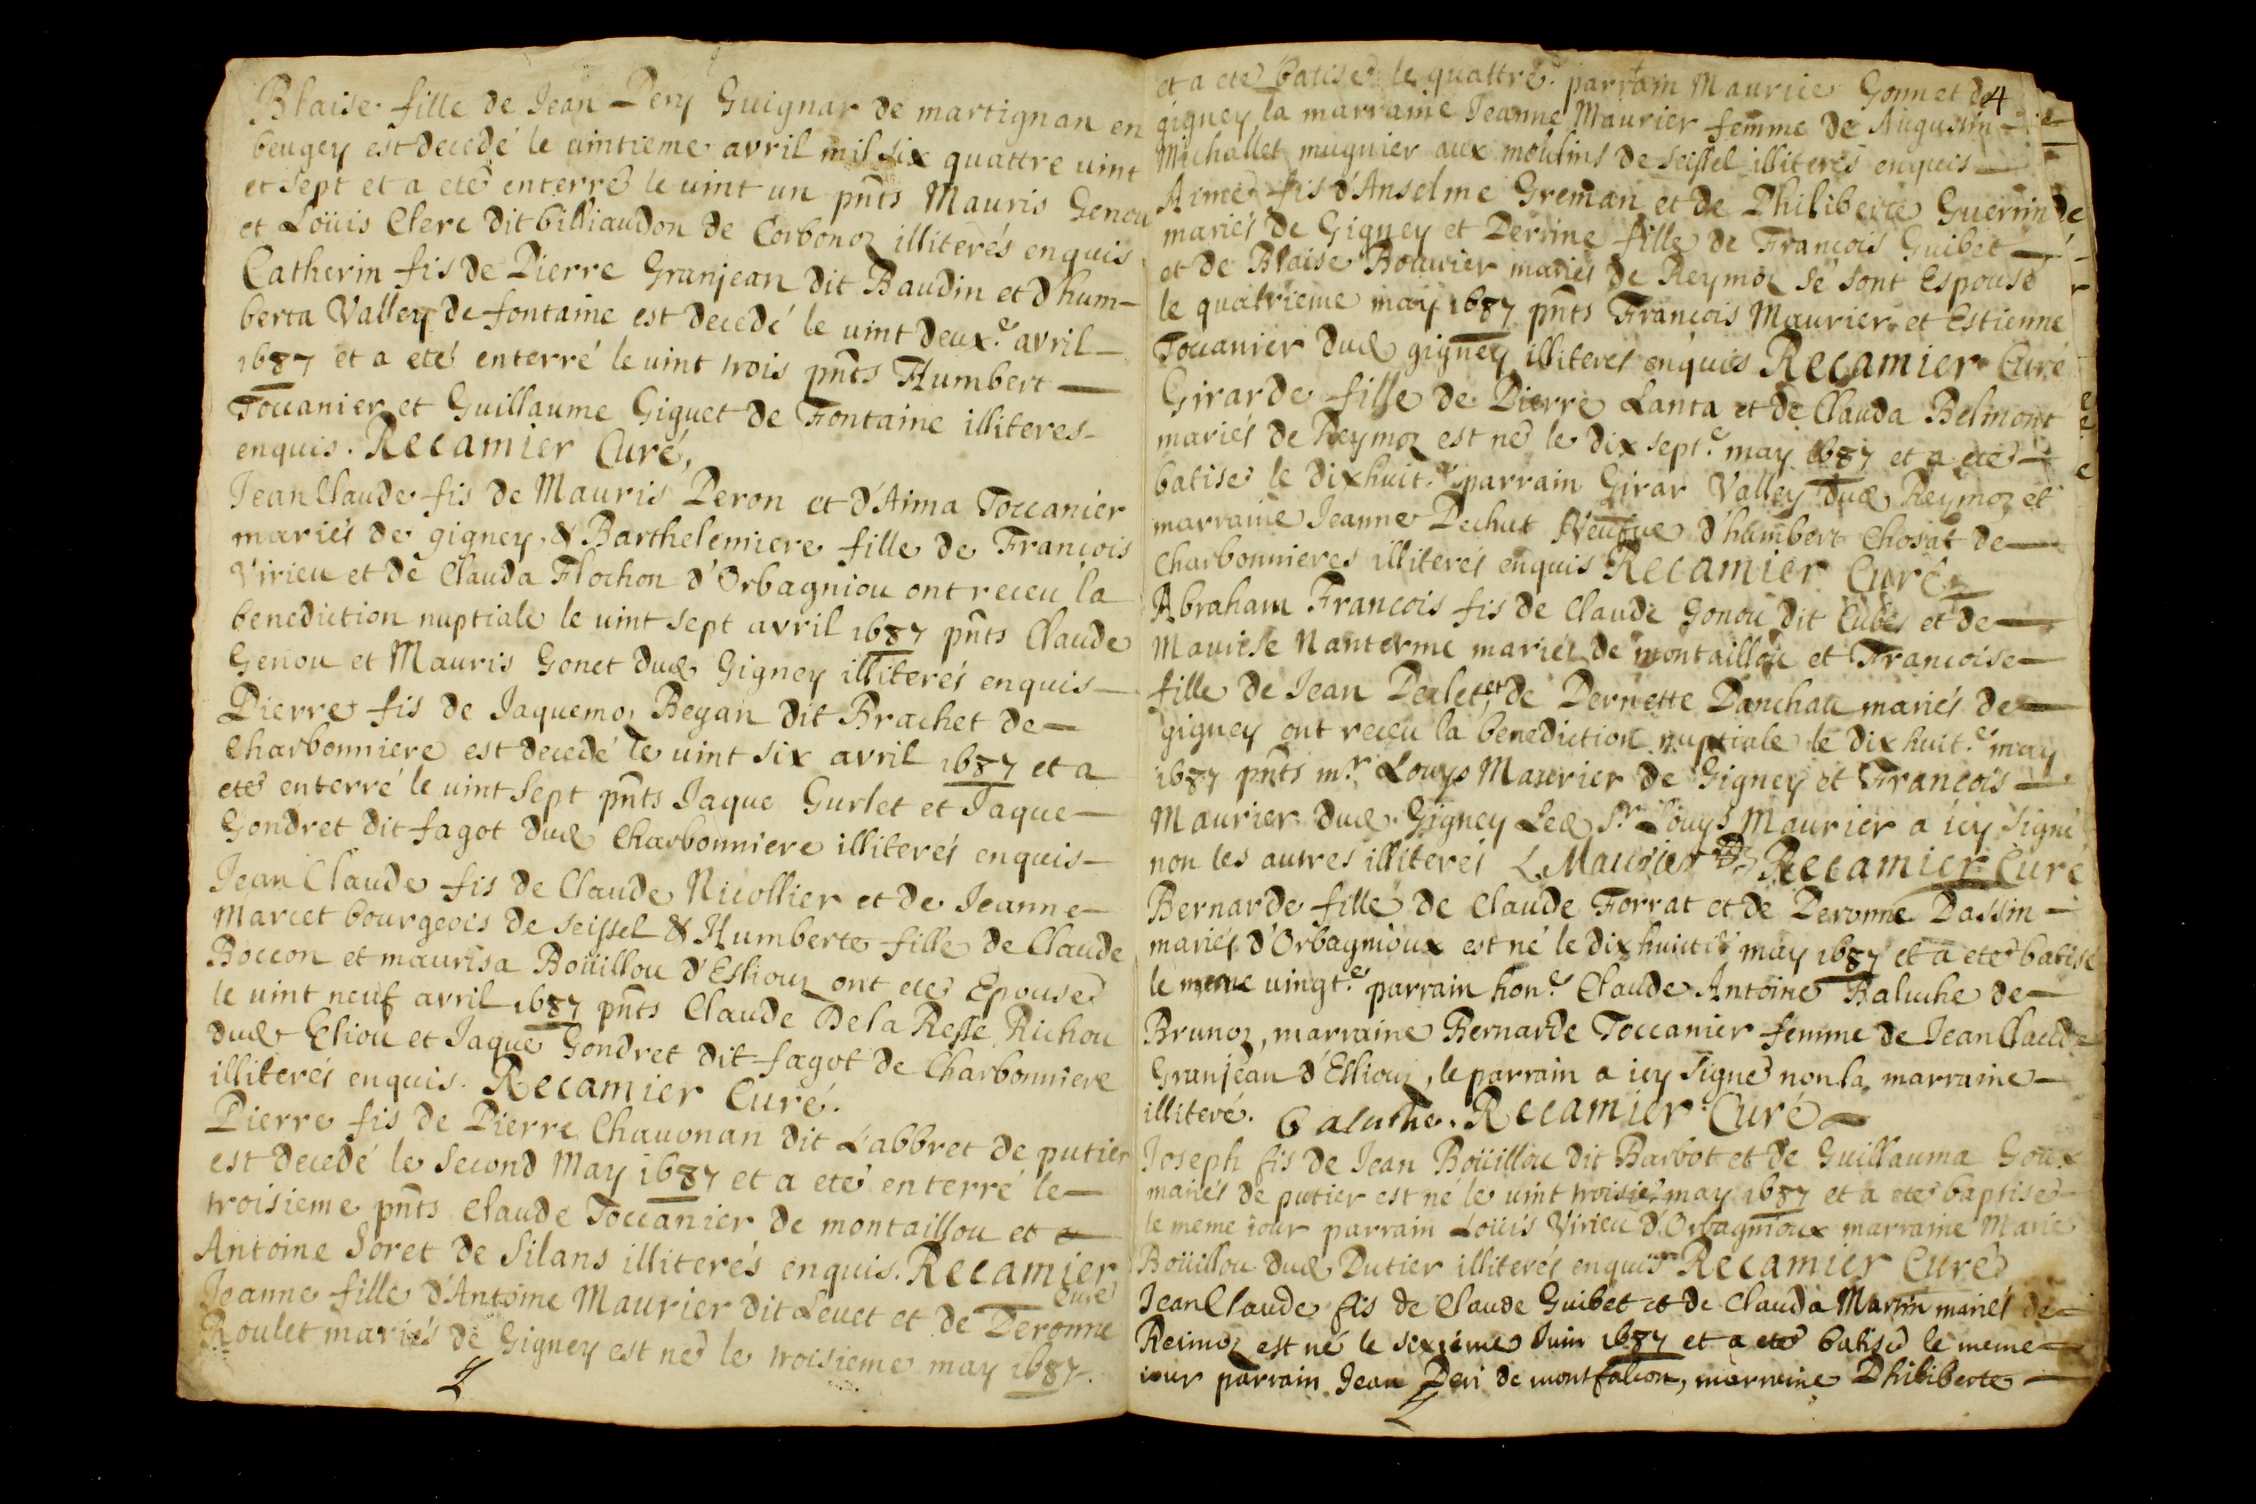 Blaise fille de Jean Pery Guignar de martignan en
beugey est decedé le uintieme avril mil six quattre uint
et sept et a eté enterré le uint un pnts Mauris Genou
et Loüis Clerc dit billiaudon de Corbonoz illiterés enquis
Catherin fis de Pierre Granjean dit Baudin et d'hum-
berta Valley de fontaine est decedé le uint deux.e avril
1687 et a eté enterré le uint trois pnts Humbert
Toccanier et Guillaume Giguet de Fontaine illiteres
enquis. Recamier Curé,
Jean Claude fis de Mauris Peron et d'Aima Toccanier
mariés de gigney & Barthelemiere fille de François
Virieu et de Clauda Flochon d'Orbagniou ont receu la
benediction nuptiale le uint sept avril 1687 pnts Claude
Genou et Mauris Gonet dud Gigney illiterés enquis
Pierre fis de Jaquemoz Began dit Brachet de
Charbonniere est decedé le uint six avril 1687 et a
eté enterré le uint sept pnts Jaque Gurlet et Jaque
Gondret dit fagot dud Charbonniere illiterés enquis
Jean Claude fis de Claude Nicollier et de Jeanne
Marcet bourgeois de seissel & Humberte fille de Claude
Boccon et maurisa Boüillou d'Esliouz ont eté Epousé
le uint neuf avril 1687 pnts Claude De la Resse Richou
dud Eliou et Jaque Gondret dit fagot de Charbonniere
illiterés enquis. Recamier Curé.
Pierre fis de Pierre Chauonan dit Labbret de putier
est decedé le second May 1687 et a eté enterré le
troisieme pnts Claude Toccanier de montaillou et
Antoine Soret de Silans illiterés enquis. Recamier
Curé
Jeanne fille d'Antoine Maurier dit Leuet et de Peronne
Roulet mariés de Gigney est né le troisieme may 1687.
4
et a eté batisé le quattre.e parrain Maurice Gonnet de
gigney la marraine Jeanne Maurier femme de Augustin
Michallet mugnier aux moulins de seissel illiterés enquis
Aimé fis d'Anselme Greman et de Philiberte Guerrin
mariés de Gigney et Perrine fille de François Guibet
et de Blaise Bouuier mariés de Reymoz se sont Espousé
le quatrieme may 1687 pnts François Maurier et Estienne
Toccanier dud gigney illiterés enquis Recamier Curé
Girarde fille de Pierre Lanta et de Clauda Belmont
mariés de Reymoz est né le dix sept.e may 1687 et a eté
batisé le dixhuit.e parrain Girar Valley dud Reymoz et
marraine Jeanne Pechut Veufue d'humbert Chosat de
Charbonnieres illiterés enquis Recamier Curé
Abraham François fis de Claude Gonou dit Cubes et de
Maurise Nanterme mariés de montaillou et Françoise
fille de Jean Perlet, et de Pernette Panchau mariés de
gigney ont receu la benediction nuptiale le dix huit.e may
1687 pnts m.r Louys Maurier de Gigney et François
Maurier dud Gigney Led Sr Louys Maurier a icy signé
non les autres illiterés L Maurier Recamier Curé
Bernarde fille de Claude Forrat et de Peronne Dassin
mariés d'Orbagnioux est né le dix huict.e may 1687 et a eté batisé
le meme uingt.e parrain hon.e Claude Antoine Baluche de
Brunoz, marraine Bernarde Toccanier femme de Jean Claude
Granjean d'Esliouz, le parrain a icy signé non la marraine
illiteré. Baluche. Recamier Curé
Joseph fis de Jean Boüillou dit Barbot et de Guillauma Goux
mariés de putier est né le uint troisie. may 1687 et a eté baptisé
le meme iour parrain Loüis Virieu d'Orbagnioux marraine Marie
Boüillou dud Putier illiterés enquis Recamier Curé
Jean Claude fis de Claude Guibet et de Clauda Martin mariés de
Reimoz est né le sixieme Juin 1687 et a eté batisé le meme
iour parrain Jean Peri de montfalcon, marraine Philiberte